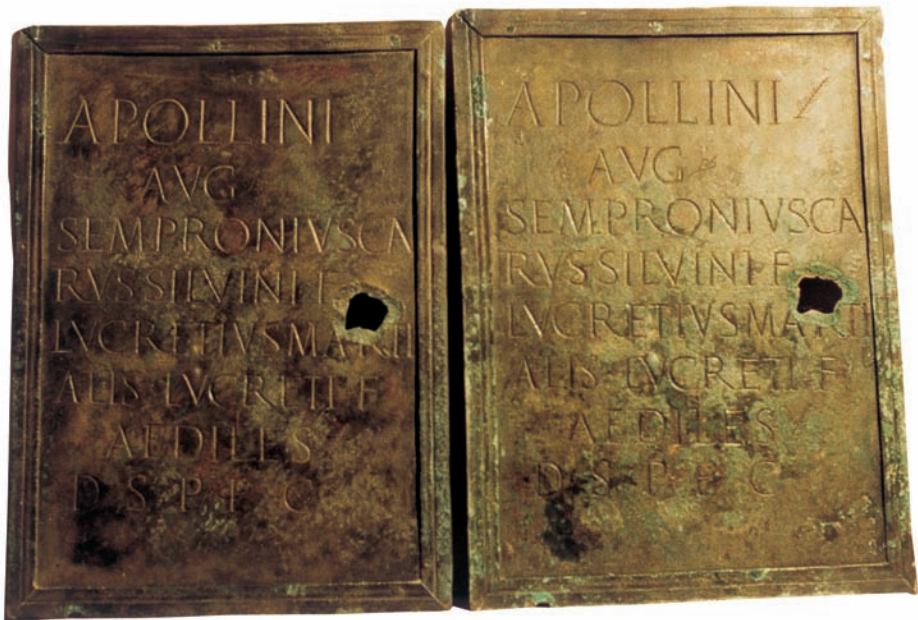 APOLLINI
AVG
SEMPRONIVSCA
RVSSILVINI F
LVCRETIVSMARTI
ALIS LVCRETI F
AEDILES
D S P F C
APOLLINI
AVG
SEMPRONIVSCA
RVSSILVINI F
LVCRETIVSMARTI
ALIS LVCRETI F
AEDILES
D S P F C